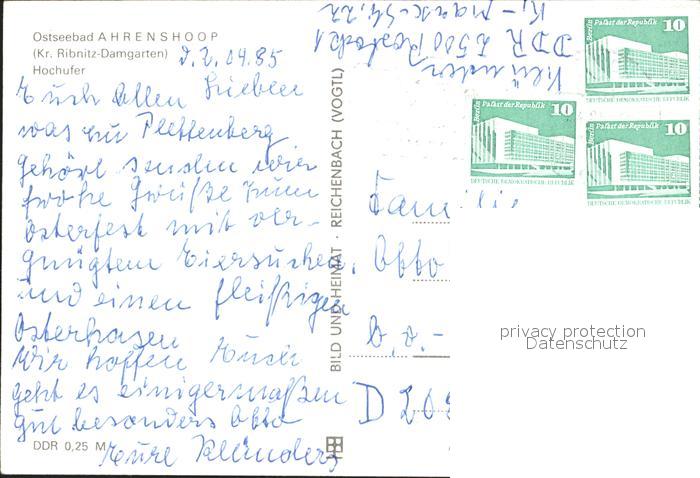 Ostseebad AHRENSHOOP
(Kr. Ribnitz-Damgarten)
Hochufer
d. 2.04.85
Euch allen Lieben
was zu Plettenberg
gehört senden wir
frohe Grüße zum
Osterfest mit ver-
gnügtem Eiersuchen
und einen fleißigen
Osterhasen
Wir hoffen Euch
geht es einigermaßen
gut besonders Otto
Eure Klünders
DDR 0,25 M
BILD UND HEIMAT · REICHENBACH (VOGTL)
Klünder
DDR 2500 Rostock 1
K.-Marx-Str. 22
Berlin Palast der Republik 10
DEUTSCHE DEMOKRATISCHE REPUBLIK
Berlin Palast der Republik 10
DEUTSCHE DEMOKRATISCHE REPUBLIK
Berlin Palast der Republik 10
DEUTSCHE DEMOKRATISCHE REPUBLIK
Familie
Otto
D
privacy protection
Datenschutz